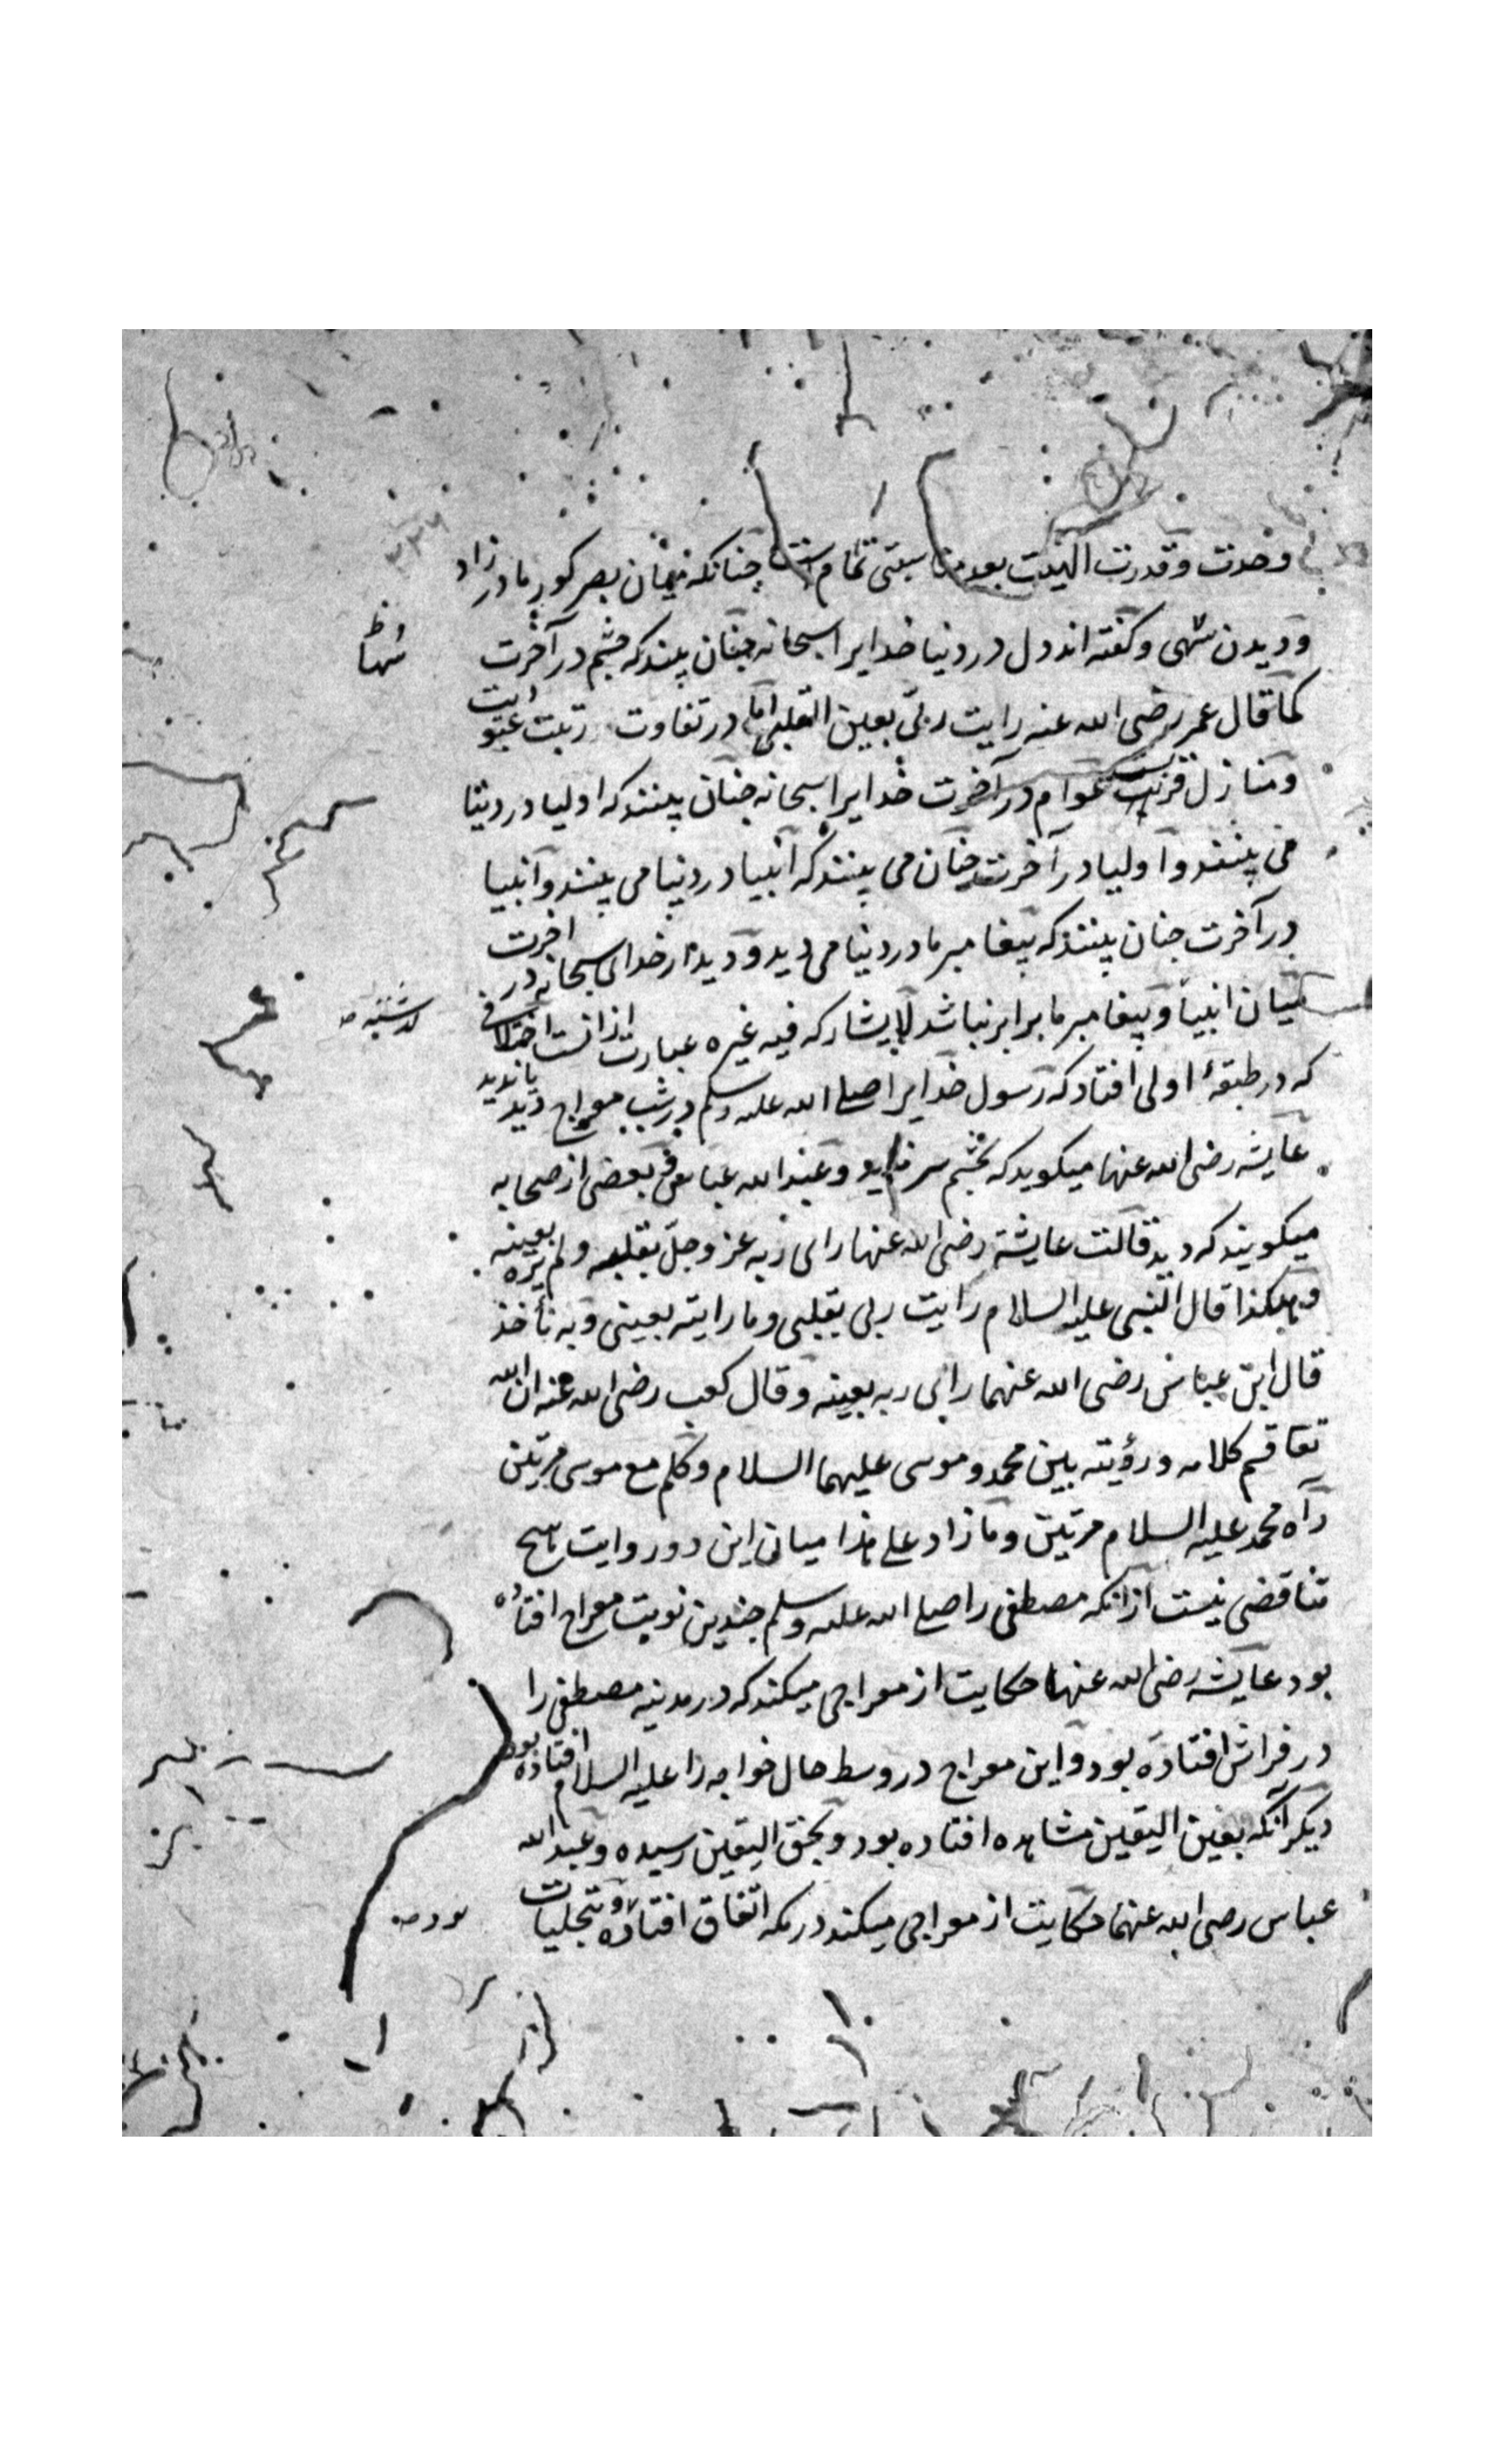 وحدت وقدرت الهیت بعدم مناسبتی تمام است چنانکه میان بصر کور مادر زاد
و دیدن سهی وگفته اند دل در دنیا خدایرا سبحانه چنان بیند که چشم در آخرت
کما قال عمر رضی الله عنه رایت ربی بعین القلبی اما در تفاوت رتبت عبودیت
ومنازل قربت عوام در آخرت خدایرا سبحانه چنان بینند که اولیا در دنیا
می بینند و اولیا در آخرت چنان می بینند که انبیا در دنیا می بینند و انبیا
در آخرت چنان بینند که پیغامبر ما در دنیا می دید و دیدار خدای سبحانه در آخرت
میان انبیا و پیغامبر ما برابر نباشد لایشارکه فیه غیره عبارت از انست اختلافی
که در طبقهٔ اولی افتاد که رسول خدایرا صلی الله علیه وسلم در شب معراج دید یا ندید
عایشه رضی الله عنها میکوید که بچشم سر ندید و عبدالله عباس و بعضی از صحابه
میکویند که دید قالت عایشة رضی الله عنها رای ربه عز وجل بقلبه ولم یره بعینه
وهکذا قال النبی علیه السلام رایت ربی بقلبی وما رایته بعینی وبه نأخذ
قال ابن عباس رضی الله عنهما رای ربه بعینه وقال کعب رضی الله عنه ان الله
تعا قسم کلامه ورؤیته بین محمد وموسی علیهما السلام وکلم مع موسی مرتین
رآه محمد علیه السلام مرتین وما زاد علی هذا میان این دو روایت هیچ
تناقضی نیست از انکه مصطفی را صلی الله علیه وسلم چندین نوبت معراج افتاده
بود عایشه رضی الله عنها حکایت از معراجی میکند که در مدینه مصطفی را
در فراش افتاده بود و این معراج در وسط حال خواجه را علیه السلام افتاده بود
دیکر آنکه بعین الیقین مشاهده افتاده بود و بحق الیقین رسیده و عبدالله
عباس رضی الله عنهما حکایت از معراجی میکند در مکه اتفاق افتاده و تجلیات